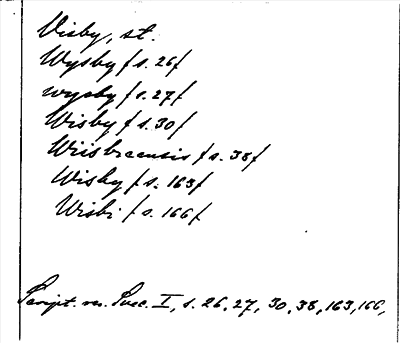 Visby, st.
Wysby / s. 26 /
wysby / s. 27 /
Wisby / s. 30 /
Wiisbycensis / s. 38 /
Wisby / s. 163 /
Wisbi / s. 166 /
Script. rer. Svec. I, s. 26, 27, 30, 38, 163, 166,